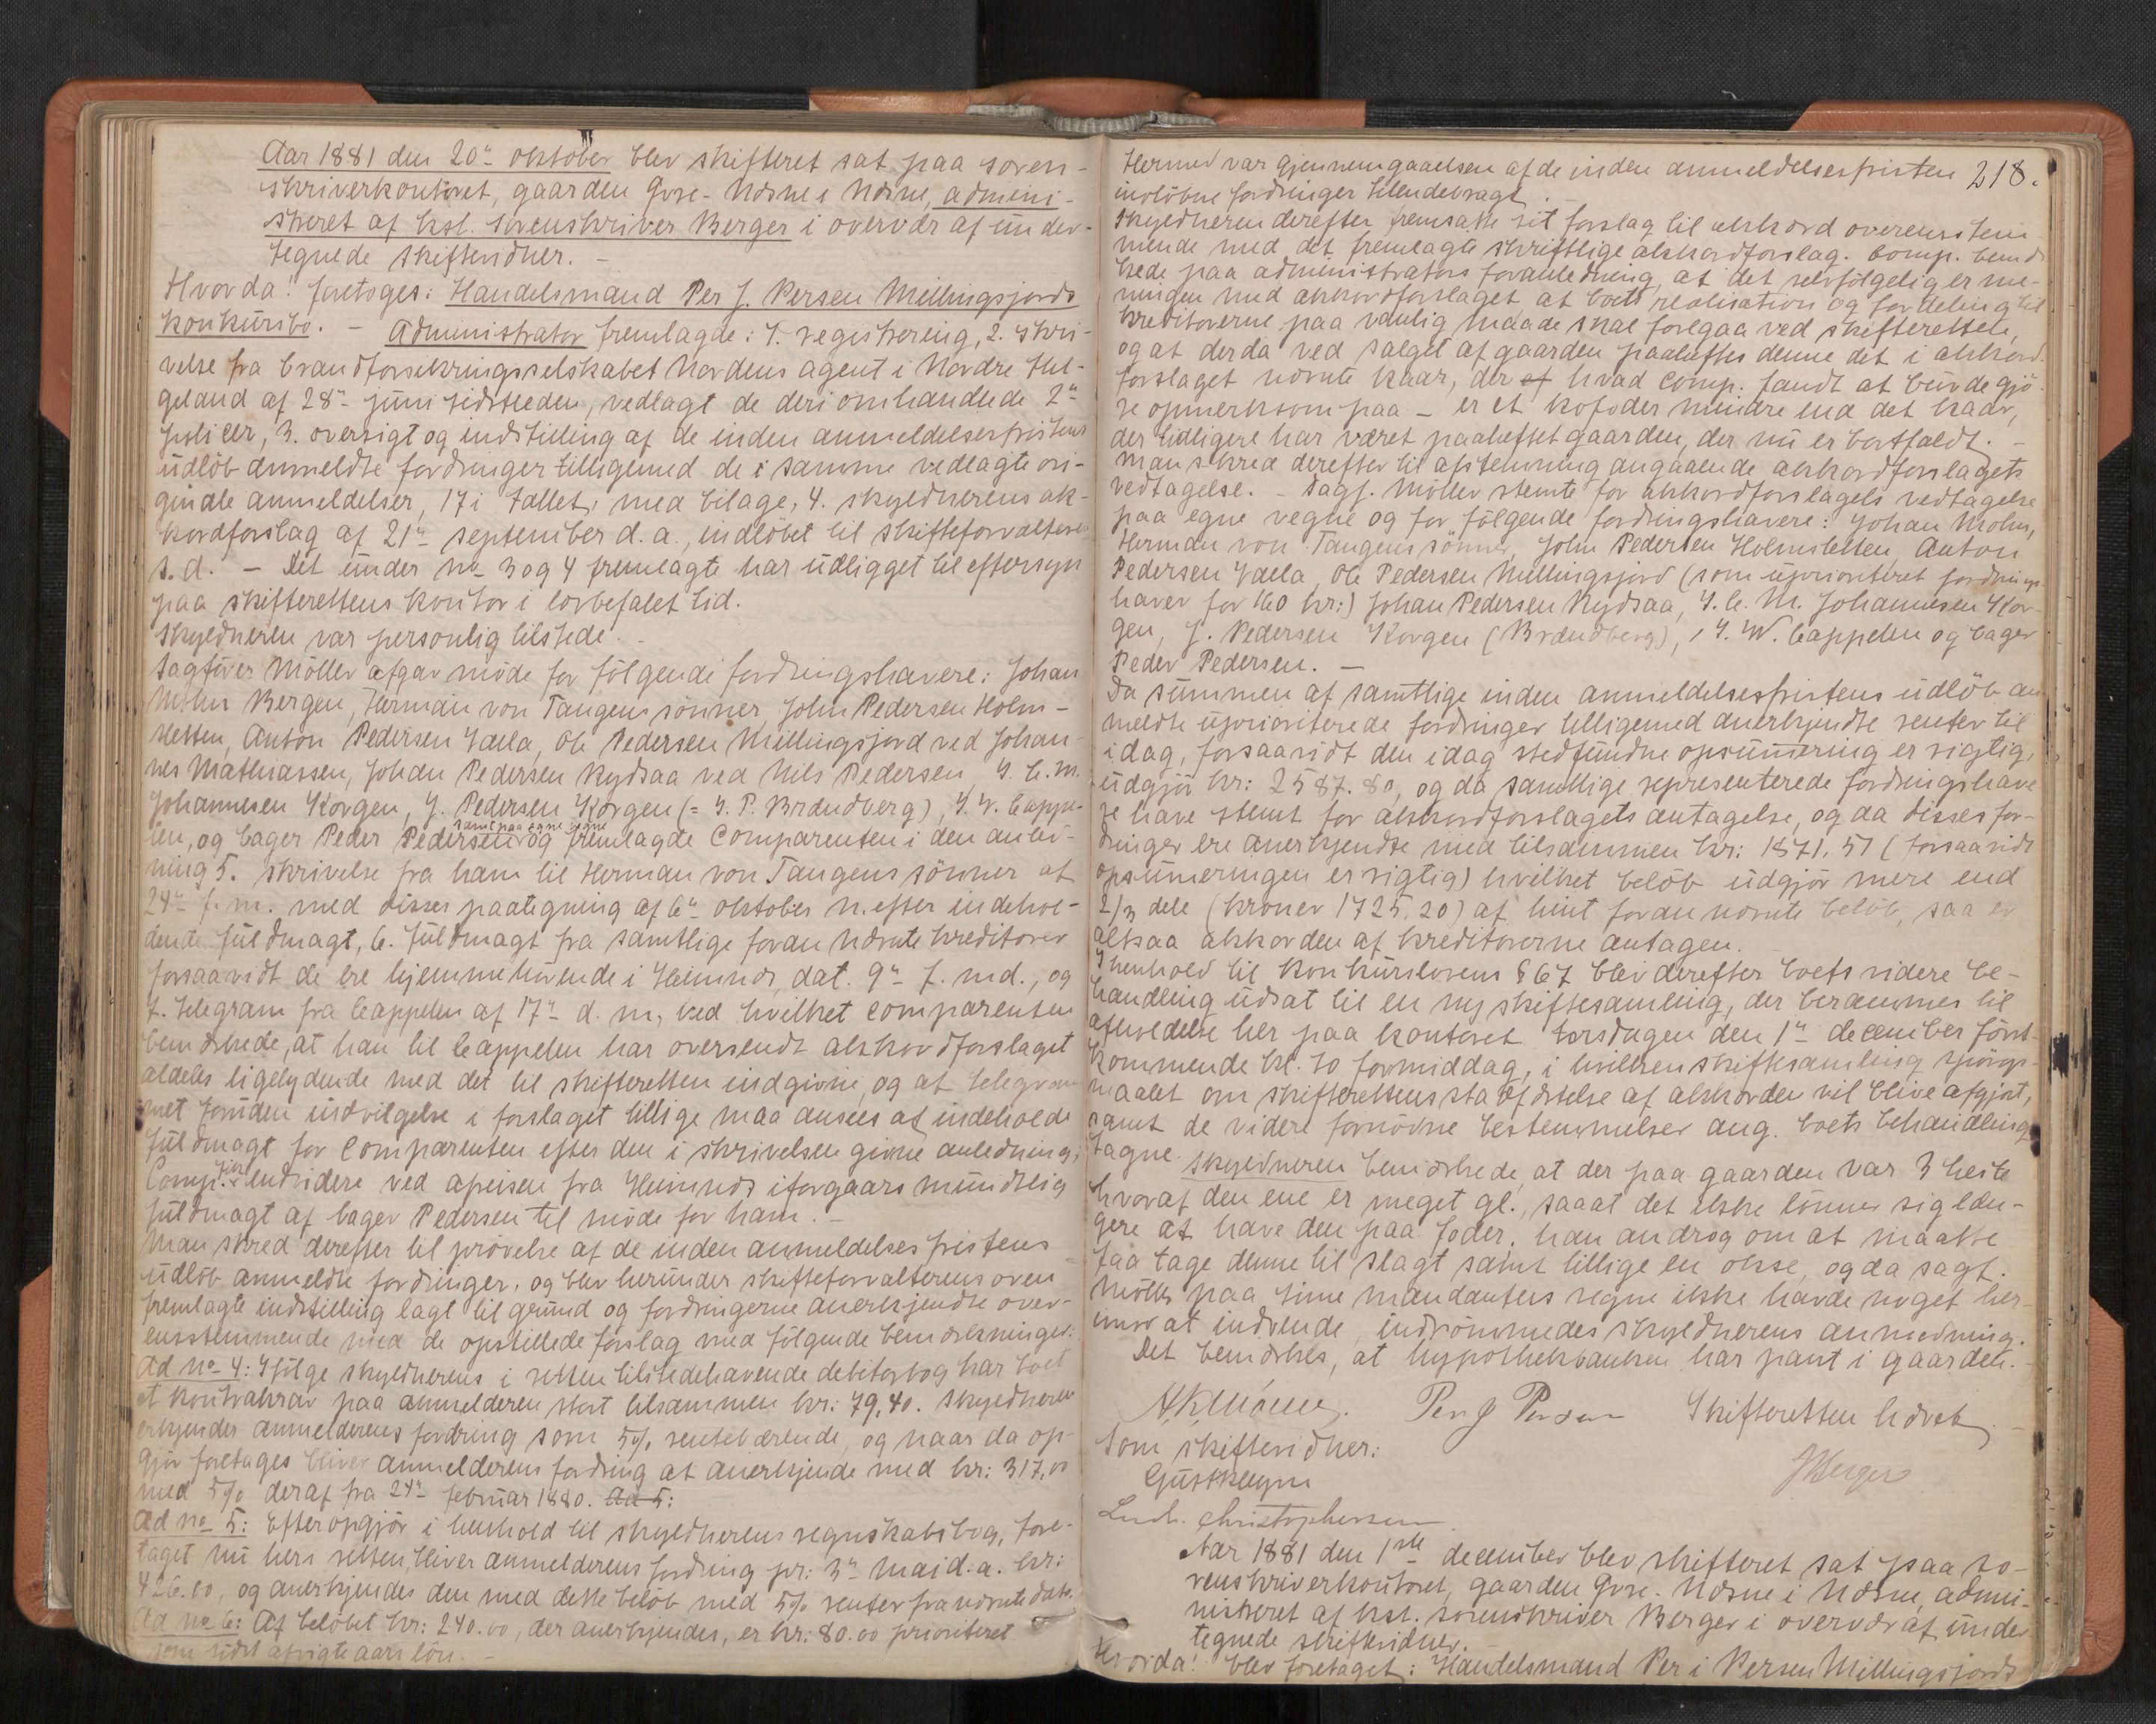 Aar 1881 den 20de oktober blev skifteret sat paa soren-
skriverkontoret, gaarden Øvre-Næsne i Næsne, admini-
streret af kst. sorenskriver Berger i overvær af under-
tegnede skiftevidner. –
Hvorda! foretoges: Handelsmand Per J. Persen Millingsjords
konkursbo. – Administrator fremlagde: 1. registrering, 2. skri-
velse fra brandforsekringsselskabet Nordens agent i Nordre Hel-
geland af 28de juni sidstleden, vedlagt de deri omhandlede 2de
policer, 3. oversigt og indstilling af de inden anmeldelsesfristens
udløb anmeldte fordringer tilligemed de i samme vedlagte ori-
ginale anmeldelser, 17 i tallet, med bilage, 4. skyldnerens ak-
kordforslag af 21de september d. a., indløbet til skifteforvalteren
s. d. – Det under no 3 og 4 fremlagte har udligget til eftersyn
paa skifterettens kontor i lovbefalet tid.
Skyldneren var personlig tilstede. –
Sagfører Møller afgav møde for følgende fordringshavere: Johan
Mohn Bergen, Herman von Tangens sønner, John Pedersen Holm-
sletten, Anton Pedersen Ydela, Ole Pedersen Millingsjord ved Johan-
nes Mathiassen, Johan Pedersen Rydsaa ved Nils Pedersen, J. C. M.
Johannesen Korgen, J. Pedersen Korgen (= J. P. Brændberg), J. W. Cappe-
len, og bager Peder Pedersen samt paa egne vegne og fremlagde Comparenten i den anled-
ning 5. skrivelse fra ham til Herman von Tangens sønner af
24de f. m. med disses paategning af 6te oktober n. efter indehol-
dende fuldmagt, 6. fuldmagt fra samtlige foran nævnte kreditorer
forsaavidt de ere hjemmehørende i Hemnæs, dat. 9de f. md., og
7. telegram fra Cappelen af 17de d. m, ved hvilket comparenten
bemærkede, at han til Cappelen har oversendt akkordforslaget
aldeles ligelydende med det til skifteretten indgivne, og at telegram-
met foruden indvilgelse i forslaget tillige maa ansees at indeholde
fuldmagt for Comparenten efter den i skrivelsen givne anledning;
Comp. fik endvidere ved afreisen fra Hemnæs iforgaars mundtlig
fuldmagt af bager Pedersen til møde for ham. –
Man skred derefter til prøvelse af de inden anmeldelsesfristens
udløb anmeldte fordringer, og blev herunder skifteforvalterens oven
fremlagte indstilling lagt til grund og fordringerne anerkjendte over-
ensstemmende med de opstillede forslag med følgende bemærkninger:
Ad no 4: Ifølge skyldnerens i retten tilstedehavende debitorbog har boet
et kontrakrav paa anmelderen stort tilsammen kr: 79,40. Skyldneren
erkjender anmelderens fordring som 5% rentebærende, og naar da op-
gjør foretages bliver anmelderens fordring at anerkjende med kr: 317,00
med 5% deraf fra 24de februar 1880. Ad 5:
Ad no 5: Efter opgjør i henhold til skyldnerens regnskabsbog, fore-
taget nu heri retten, bliver anmelderens fordring pr: 3de mai d. a. kr:
426.00, og anerkjendes den med dette beløb med 5% renter fra nævnte dato.
Ad no 6: Af beløbet kr: 240.00, der anerkjendes, er kr: 80.00 prioriteret
som sidst afvigte aars løn. –
218.
Hermed var gjennemgaaelsen af de inden anmeldelsesfristen
indløbne fordringer tilendebragt.
Skyldneren derefter fremsatte sit forslag til akkord overensstem-
mende med det fremlagte skriftlige akkordforslag. Comp. bemær-
kede paa administrators foranledning, at det selvfølgelig er me-
ningen med akkordforslaget at boets realisation og fordeling til
kreditorerne paa vanlig maade skal foregaa ved skifteretten,
og at der da ved salget af gaarden paaheftes denne det i akkord-
forslaget nævnte kaar, der ef hvad comp. fandt at burde gjø-
re opmerksom paa – er et kofoder mindre end det kaar,
der tidligere har været paaheftet gaarden, der nu er bortfaldt. –
Man skred derefter til afstemning angaaende akkordforslagets
vedtagelse. – Sagf. Møller stemte for akkordforslagets vedtagelse
paa egne vegne og for følgende fordringshavere: Johan Mohn,
Herman von Tangens sønner, John Pedersen Holmsletten, Anton
Pedersen Ydela, Ole Pedersen Millingsjord (som uprioriteret fordrings-
haver for 160 kr:) Johan Pedersen Rydsaa, J. C. M. Johannesen Kor-
gen, J. Pedersen Korgen (Brændberg), J. W. Cappelen og bager
Peder Pedersen. –
Da summen af samtlige inden anmeldelsesfristens udløb an-
meldte uprioriterede fordringer tilligemed anerkjendte renter til
idag, forsaavidt den idag stedfundne opsummering er rigtig,
udgjør kr: 2587.80, og da samtlige representerede fordringshave-
re have stemt for akkordforslagets antagelse, og da disses for-
dringer ere anerkjendte med tilsammen kr: 1871,51 (forsaavidt
opsumeringen er rigtig) hvilket beløb udgjør mere end
2/3 dele (kroner 1725,20) af hint foran nævnte beløb, saa er
altsaa akkorden af kreditorerne antagen.
I henhold til konkurslovens § 67 blev derefter boets videre be-
handling udsat til en ny skiftesamling, der berammes til
afholdelse her paa kontoret torsdagen den 1ste december først-
kommende kl. 10 formiddag, i hvilken skiftesamling spørgs-
maalet om skifterettens stadfæstelse af akkorden vil blive afgjort,
samt de videre fornødne bestemmelser ang. boets behandling
tagne. Skyldneren bemærkede, at der paa gaarden var 3 heste
hvoraf den ene er meget gl., saaat det ikke lønner sig læn-
gere at have den paa foder. han androg om at maatte
faa tage denne til slagt samt tillige en okse, og da sagf.
Møller paa sine mandanters vegne ikke havde noget her-
imod at indvende, indrømmedes skyldnerens anmodning.
Det bemærkes, at hypothekbanken har pant i gaarden. –
Per J Persen Skifteretten hævet
Som skiftevidner:
JBerger
Ludv. Christophersen
Aar 1881 den 1ste december blev skifteret sat paa so-
renskriverkontoret, gaarden Øvre-Næsne i Næsne, admi-
nistreret af kst. sorenskriver Berger i overvær af under-
tegnede skiftevidner.
Hvorda! blev foretaget: Handelsmand Per J. Persen Millingsjords